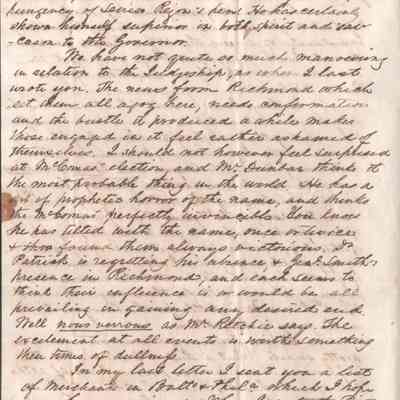 pungency of Senex Rejon's pen. He has certainly
shown himself superior in both spirit and sar-
casm to the Governor.
We have not quite so much manoevering
in relation to the Judgeship, as when I last
wrote you. The news from Richmond which
set them all agog here, needs confirmation
and the bustle it produced a while makes
those engaged in it feel rather ashamed of
themselves. I should not however feel surprised
at McComas' election, and Mr. Dunbar thinks it
the most probable thing in the world. He has a
of prophetic horror of the name, and thinks
the McComas' perfectly invincible. You know
he has tilted with the name, once or twice
& thus found them always victorious. Dr
Patrick is regretting his absence & Genl. Smith's
presence in Richmond, and each seems to
think their influence is or would be all
prevailing in gaining any desired end
Well nous verrons as Mr Ritchie says. The
excitement at all events is worth something
these times of dullness.
In my last letter I sent you a list
of Merchants in Balto & Phila which I hope